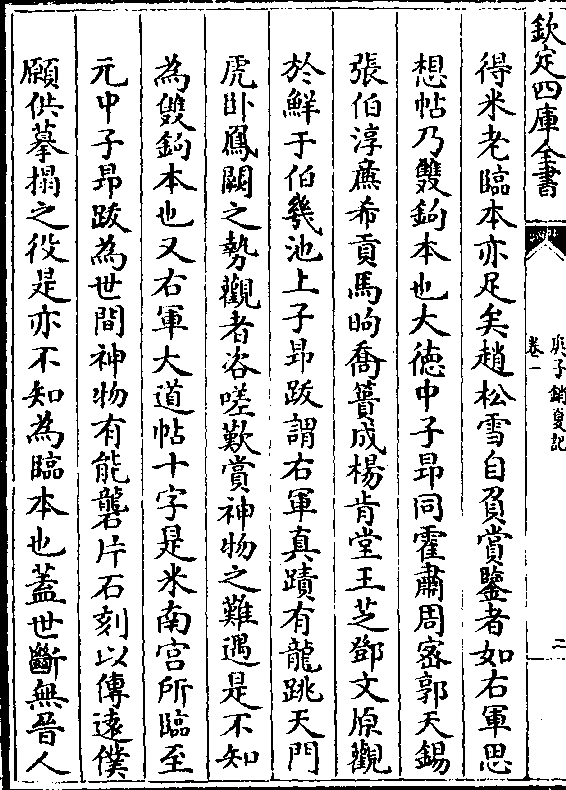 欽定四庫全書
庚子銷夏記
卷一
二
得米老臨本亦足矣趙松雪自負賞鑒者如右軍思
想帖乃雙鉤本也大徳中子昂同霍肅周宻郭天錫
張伯淳亷希貢馬昫喬簣成楊肯堂王芝鄧文原觀
於鮮于伯幾池上子昂跋謂右軍真蹟有龍跳天門
虎卧鳳闕之勢觀者咨嗟歎賞神物之難遇是不知
為雙鉤本也又右軍大道帖十字是米南宫所臨至
元中子昂跋為世間神物有能礱片石刻以傳逺僕
願供摹搨之役是亦不知為臨本也蓋世斷無晉人